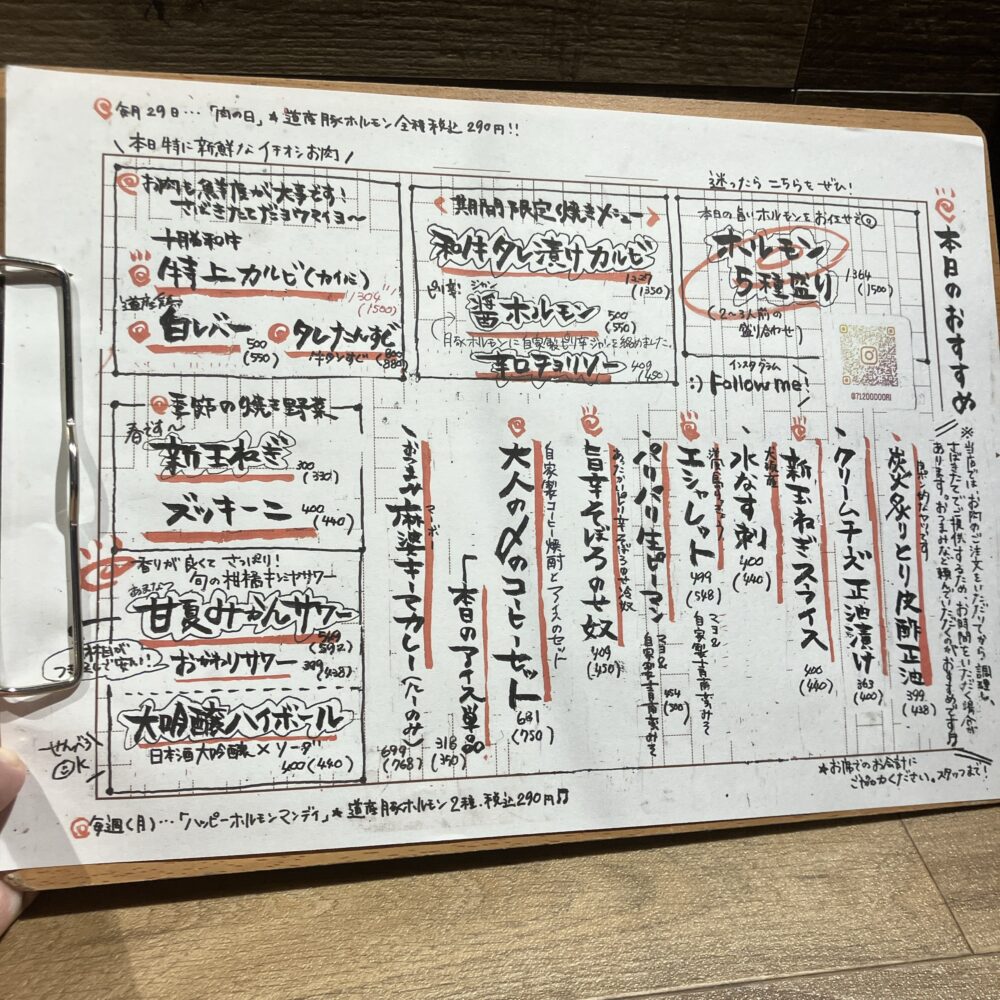 毎月29日…「肉の日」★道産豚ホルモン全種税込290円!!
\本日特に新鮮なイチオシお肉/
お肉も鮮度が大事です!
さばきたてだヨウマイヨ〜
十勝和牛
特上カルビ(カイノミ)
1304
(1500)
道産鶏
白レバー
500
(550)
タレたんすじ
牛タンすじ
800
(880)
期間限定焼きメニュー
和牛タレ漬けカルビ
1227
(1350)
ピリ辛!
ジャン
醤ホルモン
500
(550)
豚ホルモンに自家製ピリ辛ジャンを絡めました。
辛口チョリソー
409
(450)
迷ったらこちらをぜひ!
本日の旨いホルモンをお任せで
ホルモン
5種盛り
1364
(1500)
(2〜3人前の
盛り合わせ)
インスタグラム
:) Follow me!
本日のおすすめ
※当店では、お肉のご注文をいただいてから調理し、
さばきたてでご提供するため、お時間をいただく場合が
あります。おつまみなど頼んでいただくのがおすすめです
炭炙りとり皮酢正油
399
(438)
クリームチーズ正油漬け
363
(400)
新玉ねぎスライス
400
(440)
大阪産
水なす刺
400
(440)
エシャレット
499
(548)
マヨ&
自家製青南蛮みそ
パリパリ生ピーマン
マヨ&
自家製青南蛮みそ
旨辛そぼろのせ奴
409
(450)
あったかピリ辛そぼろのせ冷奴
大人の〆のコーヒーセット
681
(750)
自家製コーヒー焼酎とアイスのセット
本日のアイス単品
318
(350)
おつまみ麻婆キーマカレー(ルーのみ)
マーボー
699
(768)
季節の焼き野菜
春です〜
新玉ねぎ
300
(330)
ズッキーニ
400
(440)
香りが良くてさっぱり!
旬の柑橘サワー
あまなつ
甘夏みかんサワー
(592)
おかわりサワー
399
(438)
大吟醸ハイボール
日本酒大吟醸×ソーダ
400(440)
せんべろ
OK
★お席でのお会計に
ご協力ください。スタッフまで!
毎週(月)…「ハッピーホルモンマンデイ」★道産豚ホルモン2種税込290円♫